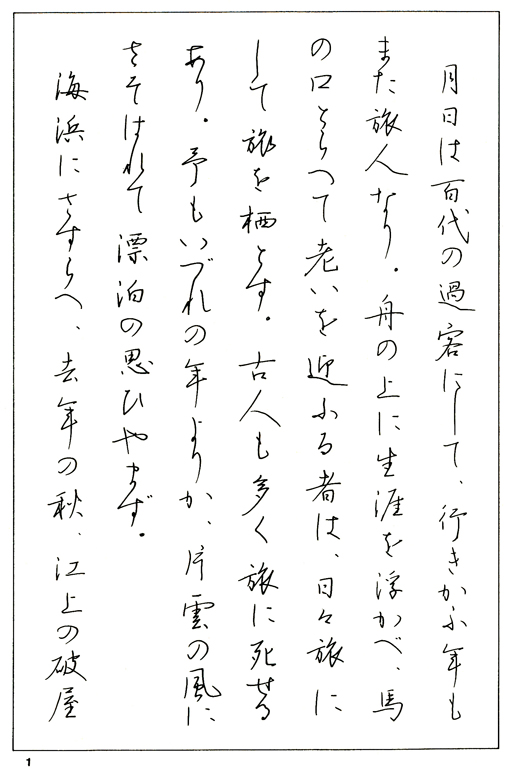 月日は百代の過客にして、行きかふ年も
また旅人なり。舟の上に生涯を浮かべ、馬
の口とらへて老いを迎ふる者は、日々旅に
して旅を栖とす。古人も多く旅に死せる
あり。予もいづれの年よりか、片雲の風に
さそはれて漂泊の思ひやまず。
海浜にさすらへ、去年の秋、江上の破屋
1